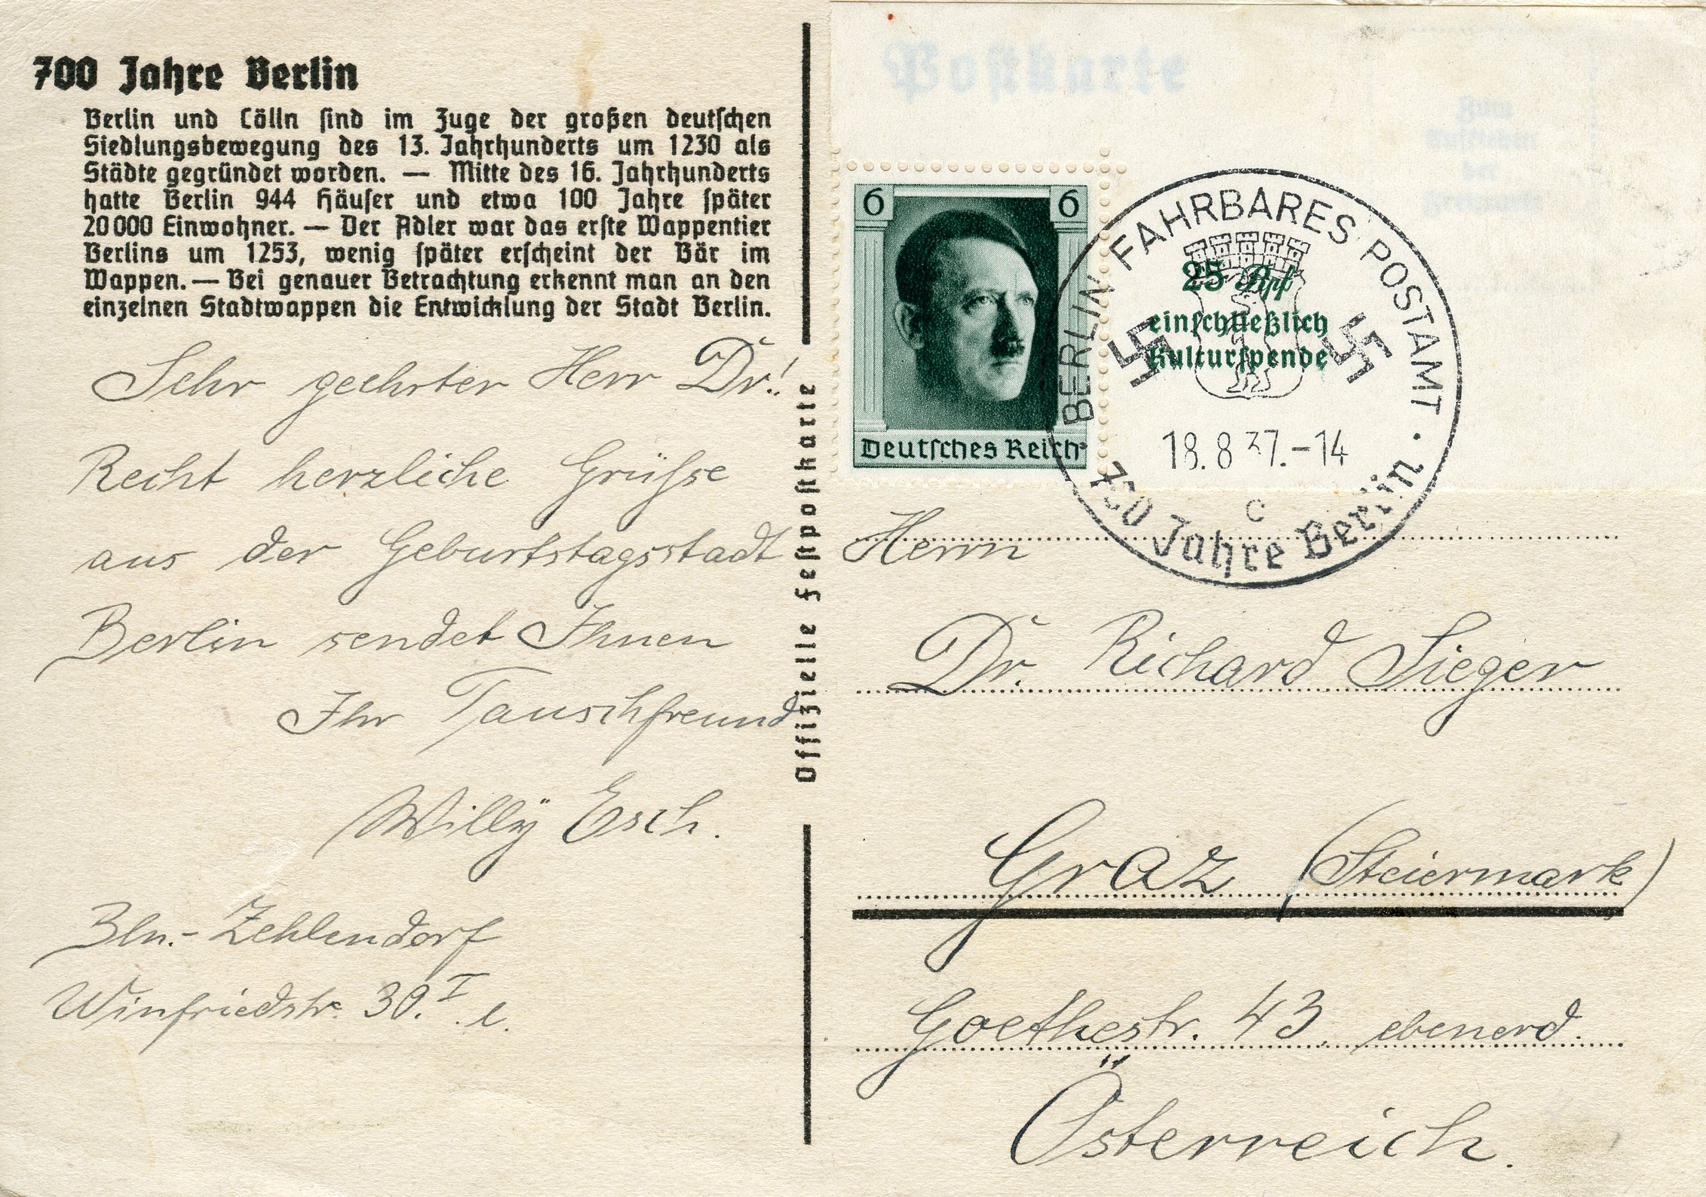 700 Jahre Berlin
Berlin und Cölln sind im Zuge der großen deutschen
Siedlungsbewegung des 13. Jahrhunderts um 1230 als
Städte gegründet worden. — Mitte des 16. Jahrhunderts
hatte Berlin 944 Häuser und etwa 100 Jahre später
20000 Einwohner. — Der Adler war das erste Wappentier
Berlins um 1253, wenig später erscheint der Bär im
Wappen. — Bei genauer Betrachtung erkennt man an den
einzelnen Stadtwappen die Entwicklung der Stadt Berlin.
Sehr geehrter Herr Dr.!
Recht herzliche Grüsse
aus der Geburtstagsstadt
Berlin sendet Ihnen
Ihr Tauschfreund
Willÿ Esch.
Bln.-Zehlendorf
Winfriedstr. 30. I l.
Offizielle Festpostkarte
Postkarte
Zum
Aufkleben
der
Freimarke
6 6
Deutsches Reich
25 Rpf
einschließlich
Kulturspende
BERLIN FAHRBARES POSTAMT
18.8.37.-14
c
700 Jahre Berlin
Herrn
Dr. Richard Sieger
Graz (Steiermark)
Goethestr. 43, ebenerd.
Österreich.